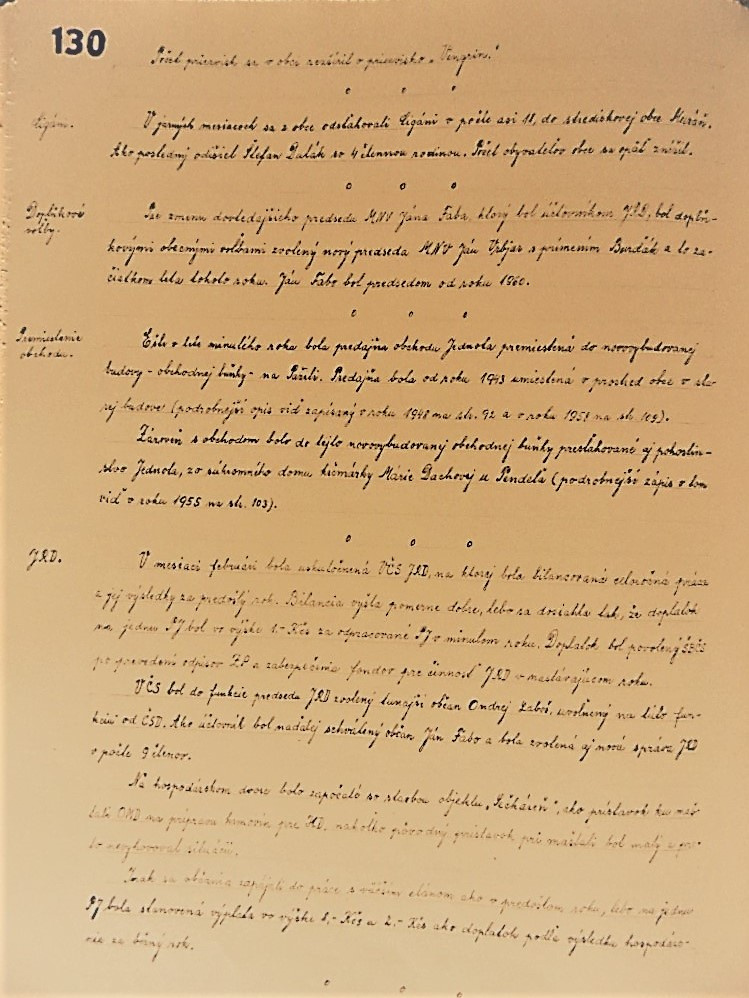 130
Počet priezvisk sa v obce rozšíril o priezvisko „Vengrin."
Cigáni.
V jarných mesiacoch sa z obce odsťahovali Cigáni v počte asi 18, do strediskovej obce Muráň.
Ako posledný odišiel Štefan Dulák so 4 člennou rodinou. Počet obyvateľov obce sa opäť znížil.
Doplňkové
voľby.
Pre zmenu dovtedajšieho predsedu MNV Jána Faba, ktorý bol účtovníkom JRD, bol doplň-
kovými obecnými voľbami zvolený nový predseda MNV Ján s prímením Burďák a to za-
čiatkom leta tohoto roku. Ján Fabo bol predsedom od roku 1960.
Premiestnenie
obchodu.
Ešte v lete minulého roka bola predajňa obchodu Jednota premiestnená do novovybudovanej
budovy - obchodnej buňky - na Pažiti. Predajňa bola od roku 1943 umiestnená v prostred obce v sta-
rej budove (podrobnejší opis viď zapísaný v roku 1948 na str. 92 a v roku 1958 na str. 109).
Zároveň s obchodom bolo do tejto novovybudovanej obchodnej buňky presťahované aj pohostin-
stvo Jednota, zo súkromného domu krčmárky Márie Dachovej u Pendeľa (podrobnejší zápis o tom
viď v roku 1955 na str. 103).
JRD.
V mesiaci februári bola uskutočnená VČS JRD, na ktorej bola bilancovaná celoročná práca
a jej výsledky za predošlý rok. Bilancia vyšla pomerne dobre, lebo sa dosiahlo tak, že doplatok
na jednu PJ bol vo výške 1.- Kčs za odpracované PJ v minulom roku. Doplatok bol povolený ŠBČS
po prevedení odpisov ZP a zabezpečenia fondov pre činnosť JRD v nastávajúcom roku.
VČS bol do funkcie predsedu JRD zvolený tunajší občan Ondrej uvoľnený na túto fun-
kciu od ČSD. Ako účtovník bol naďalej schválený občan Ján Fabo a bola zvolená aj nová správa JRD
v počte 9 členov.
Na hospodárskom dvore bolo započaté so stavbou objektu „Sečkáreň", ako prístavok ku maš-
tali OHD na prípravu krmovín pre HD, nakoľko pôvodný prístavok pri maštali bol malý a pre-
to nevyhovoval situácii.
Inak sa občania zapájali do práce s väčším elánom ako v predošlom roku, lebo na jednu
PJ bola stanovená výplata vo výške 8,- Kčs a 2,- Kčs ako doplatok podľa výsledku hospodáre-
nia za bežný rok.